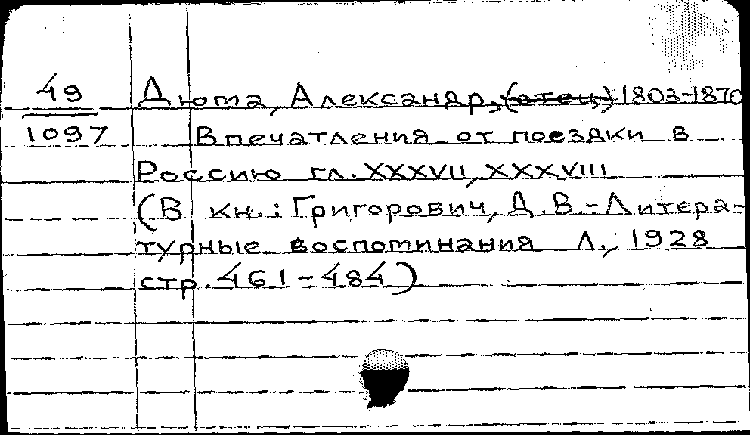 49
1097
Дюма, Александр, (отец) 1803-1870
Впечатления от поездки в
Россию гл. XXXVII, XXXVIII
(В кн.: Григорович, Д.В. - Литера-
турные воспоминания Л., 1928
стр. 461-484)